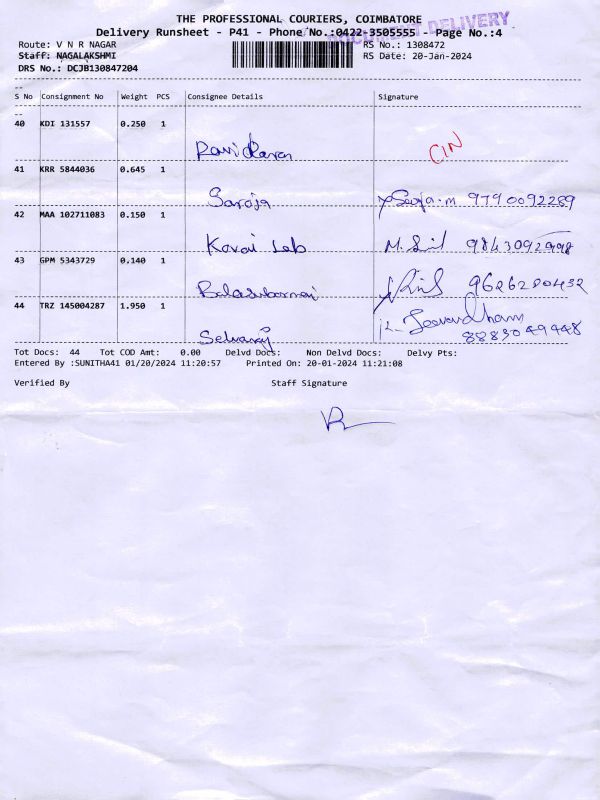 THE PROFESSIONAL COURIERS, COIMBATORE
Delivery Runsheet - P41 - Phone No.:0422-3505555 - Page No.:4
DOCUMENT DELIVERY
Route: V N R NAGAR RS No.: 1308472
Staff: NAGALAKSHMI RS Date: 20-Jan-2024
DRS No.: DCJB130847204
S No Consignment No Weight PCS Consignee Details Signature
40 KDI 131557 0.250 1
CIN
41 KRR 5844036 0.645 1
Saroja 9790092289
42 MAA 102711083 0.150 1
Kovai Lab
43 GPM 5343729 0.140 1
9626280432
44 TRZ 145004287 1.950 1
Selvaraj 8883049448
Tot Docs: 44 Tot COD Amt: 0.00 Delvd Docs: Non Delvd Docs: Delvy Pts:
Entered By :SUNITHA41 01/20/2024 11:20:57 Printed On: 20-01-2024 11:21:08
Verified By Staff Signature